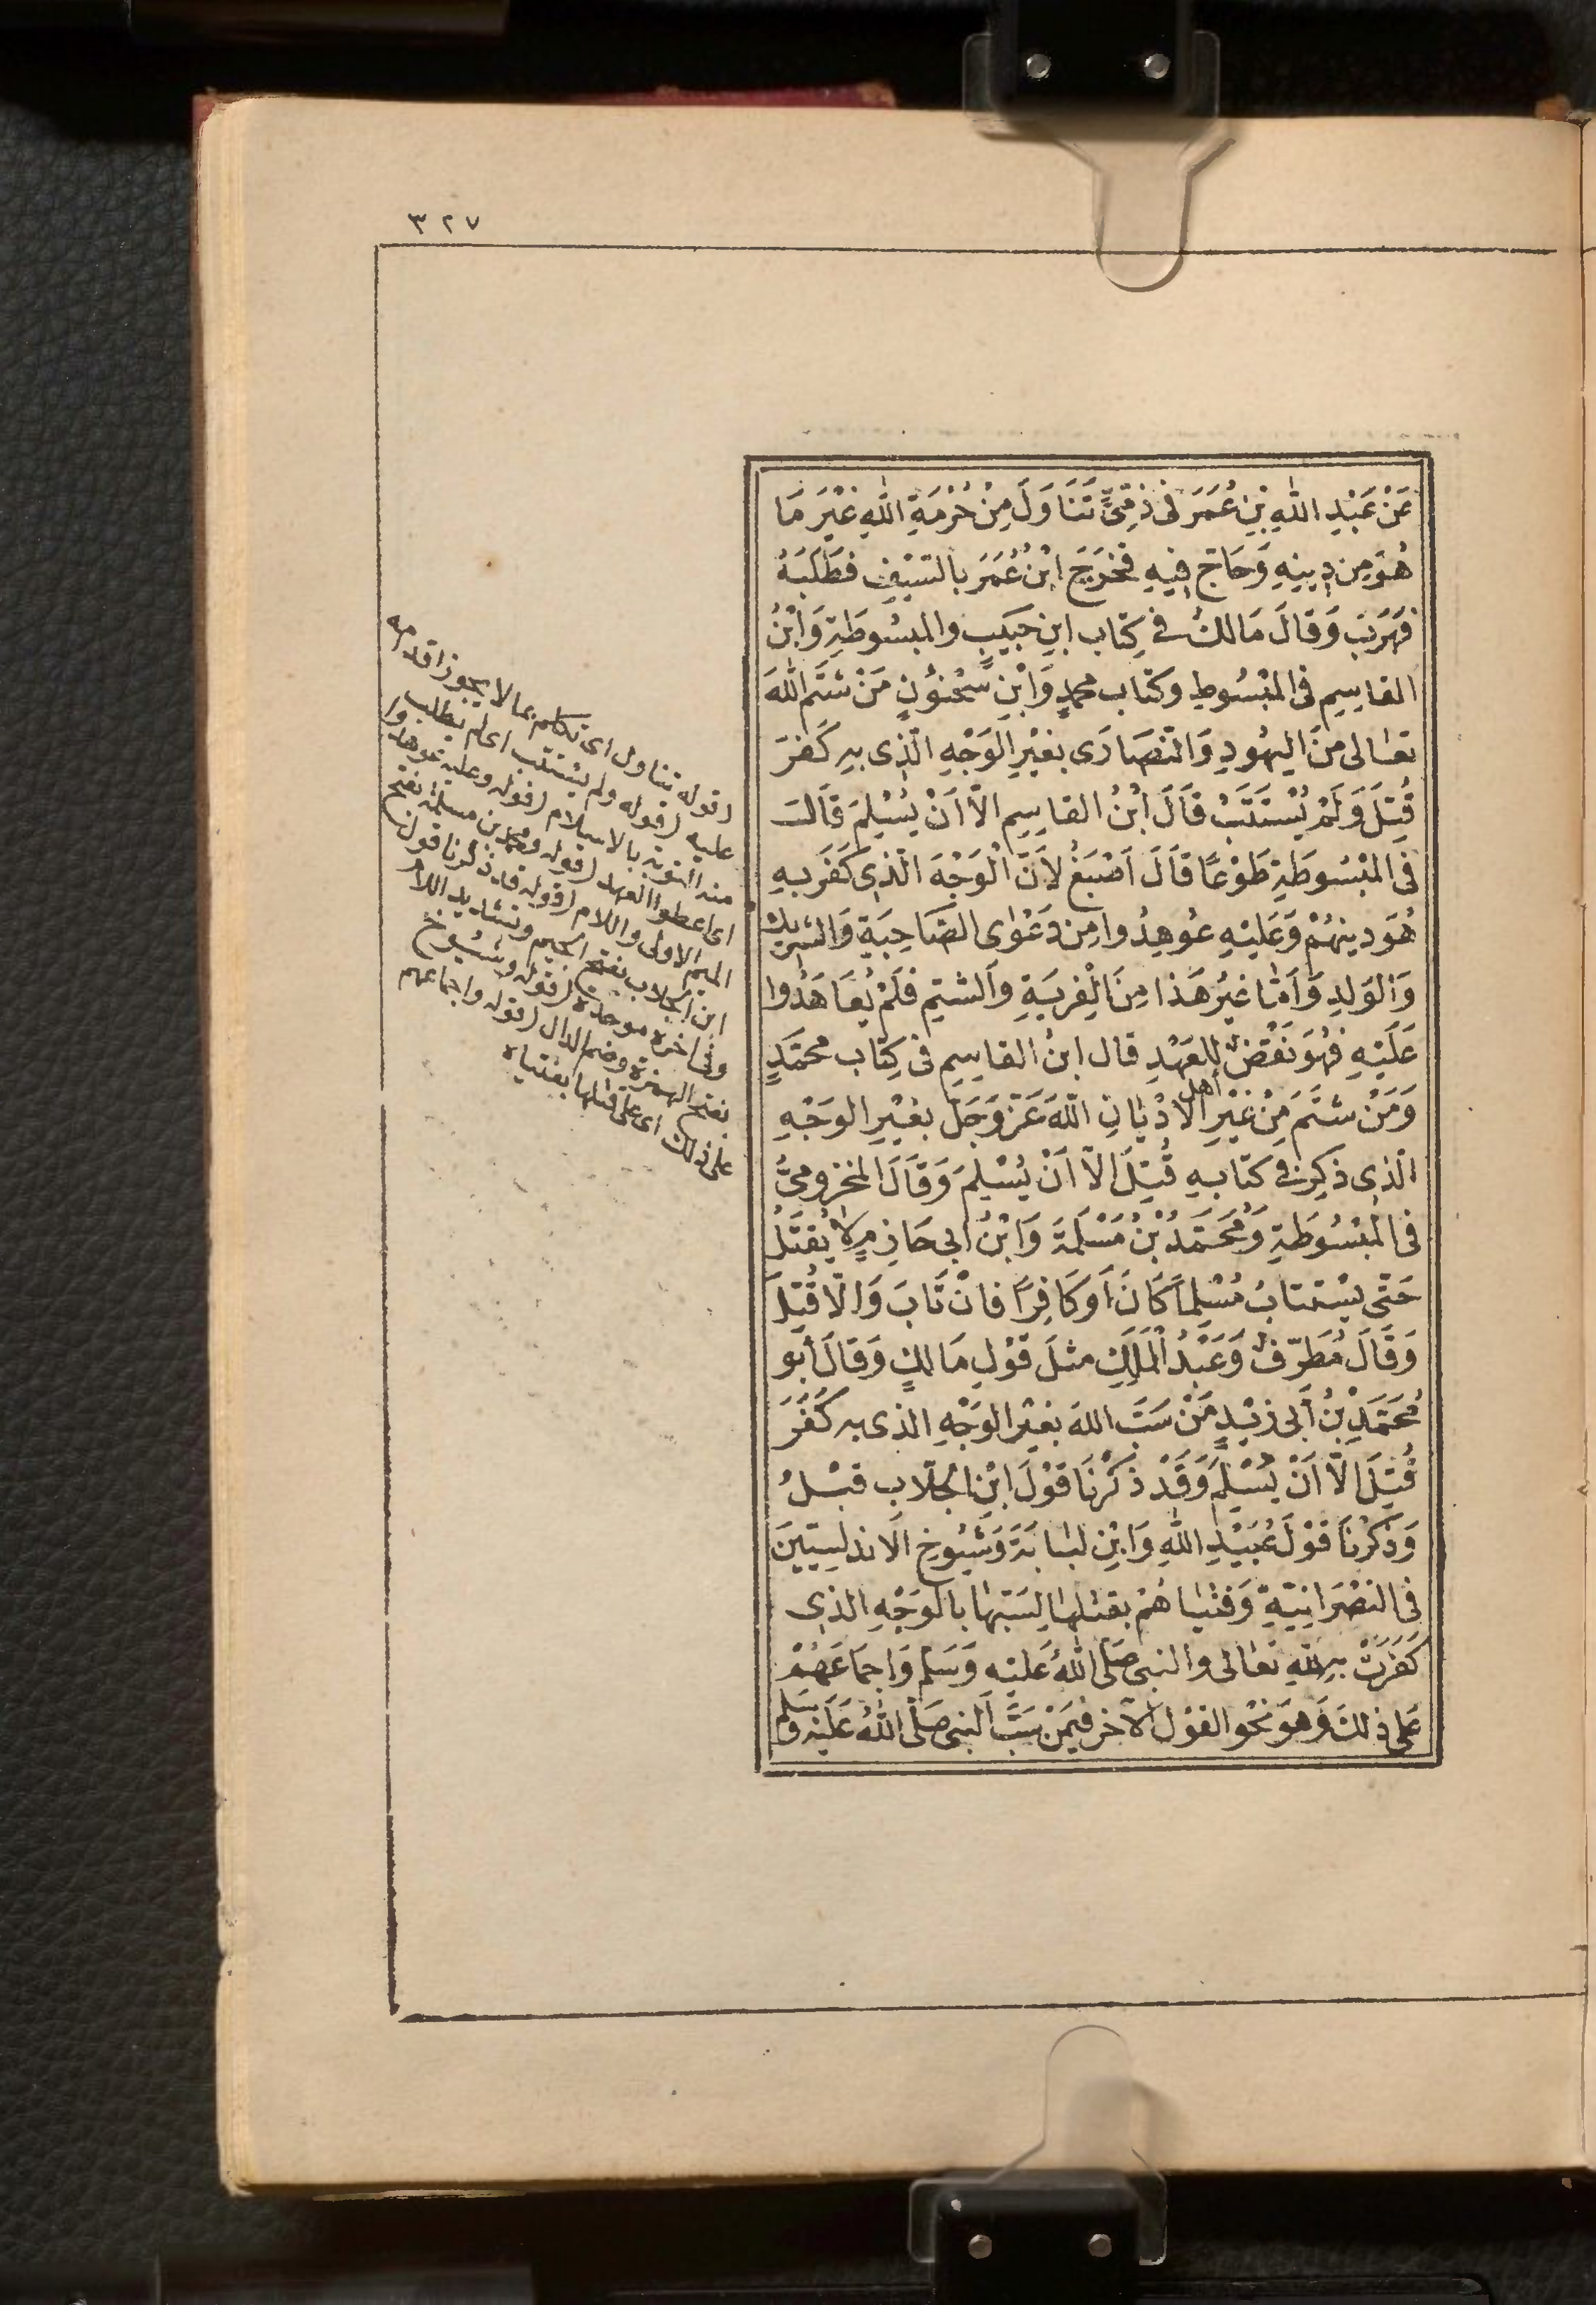 ٣٢٧
عَنْ عَبْدِ اللهِ بْنِ عُمَرَ فِى ذِمِّىٍّ تَنَاوَلَ مِنْ حُرْمَةِ اللهِ غَيْرَ مَا
هُوَ مِن دِينِهِ وَحَاجَّ فِيهِ فَخَرَجَ ابْنُ عُمَرَ بِالسَّيْفِ فَطَلَبَهُ
فَهَرَبَ وَقَالَ مَالِكٌ فى كِتَاب ابنِ حَبِيبٍ والمبسُوطَةِ وَابْنُ
القاسِمِ فى المَبْسُوطِ وكتَاب محمدٍ وَابْنِ سُحْنُونٍ مَنْ شَتَمَ اللهَ
تعَالى مِنَ اليهُودِ وَالنَّصَارَى بغَيْرِ الوَجْهِ الَّذِى بِهِ كَفَرَ
قُتِلَ وَلَمْ يُسْتَتَبْ قَالَ ابْنُ القاسِمِ الَّا اَنْ يُسْلِمَ قَالَ
فى المَبْسُوطَةِ طَوْعًا قَالَ اَصْبَغُ لِاَنَّ الْوَجْهَ الَّذِى كَفَرَ بِهِ
هُوَ دينهُمْ وَعَلَيْهِ عُوهِدُوا مِن دَعْوَى الصَّاحِبَةِ وَالشريك
وَالوَلَدِ وَاَمَّا غَيْرُ هَذا مِنَ الْفِرْيَةِ وَالشتمِ فَلَمْ يُعَاهَدُوا
عَلَيْهِ فَهُوَ نَقْضٌ للعَهْدِ قال ابنُ القاسِمِ فى كِتَاب محمَّدٍ
وَمَنْ شَتَمَ مِنْ غَيْرِ أهل الاَدْيَانِ اللهَ عَزَّ وَجَلَّ بغَيْرِ الوَجْهِ
الَّذِى ذُكِرَ فى كتَابِهِ قُتِلَ الَّا اَنْ يُسْلِمَ وَقَالَ المَخزُومِىُّ
فى المَبْسُوطَةِ وَمُحَمَّدُ بْنُ مَسْلَمَةَ وَابْنُ اَبى حَازِمٍ لَا يُقتَلُ
حَتَّى يسْتتابُ مُسْلِماً كَانَ اَو كَافِراً فانْ تَابَ وَالَّا قُتِلَ
وَقَالَ مُطَرِّفٌ وَعَبْدُ الْمَلِكِ مثلَ قَوْلِ مَالِكٍ وَقَالَ أبو
مُحَمَّدِ بْنُ أبى زيْدٍ مَنْ سَبَّ اللهَ بغيْرِ الوَجْهِ الذى به كَفَرَ
قُتِلَ الَّا اَنْ يُسْلِمَ وَقَدْ ذَكَرْنَا قَوْلَ ابْنِ الجَلّاب قبْلُ
وَذَكَرْنَا قَوْلَ عُبَيْدِ اللهِ وَابْنِ لبَابَةَ وَشُيُوخِ الاَندلسِيّينَ
فى النصْرَانِيَّةِ وَفُتْيَاهُمْ بقتلهَا لِسَبّهَا بالوَجْهِ الذِى
كَفَرَتْ بِهِ للهِ تعَالى والنبى صَلَّى اللهُ عَليْهِ وَسَلم وَاجمَاعَهُمْ
عَلى ذلكَ وَهوَ نَحْو القَوْل الآخر فيمَنْ سَبَّ النبى صَلَّى اللهُ عَلَيْهِ وَسلم
(قوله تناول اى تكلم بما لا يجوز اقدامه
عليه (قوله ولم يستتب اى لم يطلب
منه التوبة بالاسلام (قوله وعليه عوهدوا
اى اعطوا العهد (قوله ومحمد بن مسلمة بفتح
الميم الاولى واللام (قوله قد ذكرنا قول
ابن الجلاب بفتح الجيم وتشديد اللام
وفى اخره موحدة (قوله وشيوخ
بفتح الهمزة وضم الدال (قوله واجماعهم
على ذلك اى على قتلها بفتياه